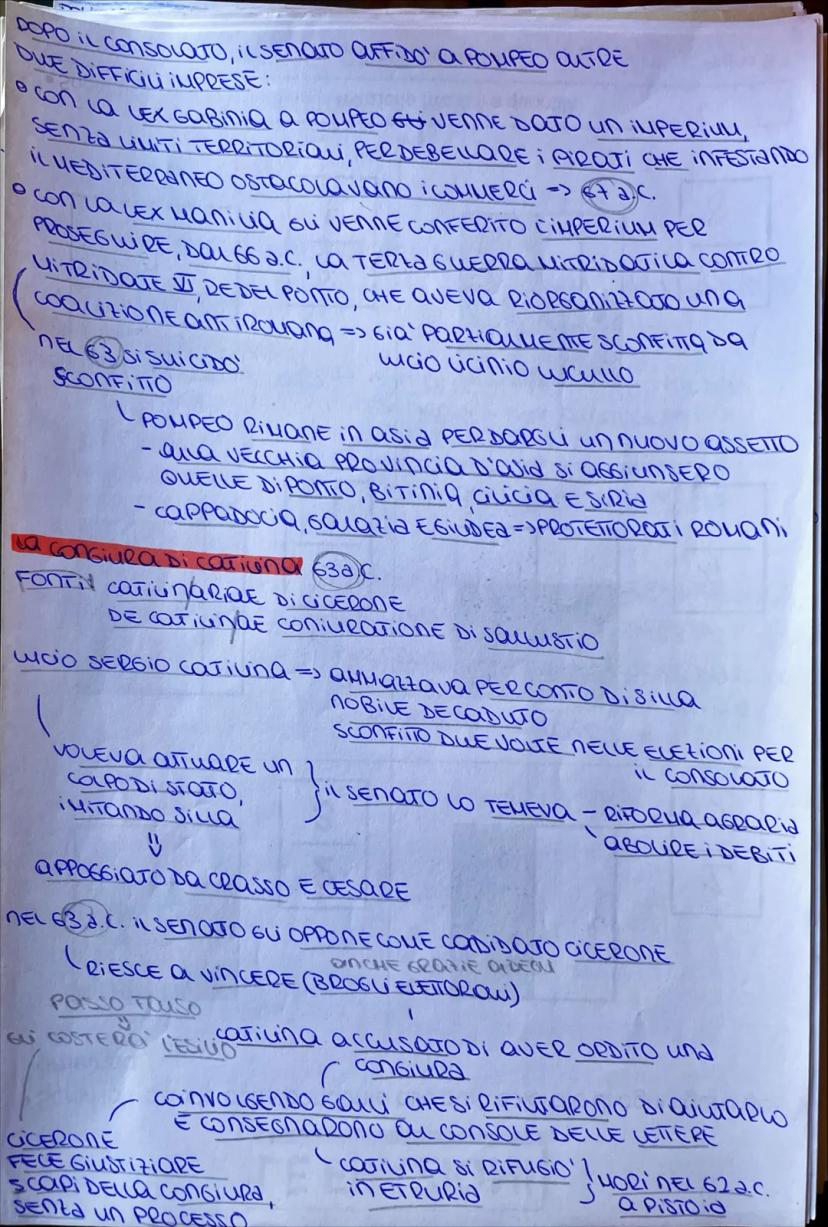 DOPO IL CONSOLATO, IL SENATO AFFIDO' A POMPEO ALTRE
DUE DIFFICILI IMPRESE:
• CON LA LEX GABINIA A POMPEO VENNE DATO UN IMPERIUM,
SENZA LIMITI TERRITORIALI, PER DEBELLARE I PIRATI CHE INFESTANDO
IL MEDITERRANEO OSTACOLAVANO I COMMERCI => 67 a.C.
• CON LA LEX MANILIA GLI VENNE CONFERITO L'IMPERIUM PER
PROSEGUIRE, DAL 66 a.C., LA TERZA GUERRA MITRIDATICA CONTRO
MITRIDATE VI, RE DEL PONTO, CHE AVEVA RIORGANIZZATO UNA
COALIZIONE ANTIROMANA => GIA' PARZIALMENTE SCONFITTA DA
LUCIO LICINIO LUCULLO
NEL 63 SI SUICIDO'
SCONFITTO
POMPEO RIMANE IN ASIA PER DARGLI UN NUOVO ASSETTO
- ALLA VECCHIA PROVINCIA D'ASIA SI AGGIUNSERO
QUELLE DI PONTO, BITINIA, CILICIA E SIRIA
- CAPPADOCIA, GALAZIA E GIUDEA => PROTETTORATI ROMANI
LA CONGIURA DI CATILINA 63 a.C.
FONTI \ CATILINARIAE DI CICERONE
DE CATILINAE CONIURATIONE DI SALLUSTIO
LUCIO SERGIO CATILINA => AMMAZZAVA PER CONTO DI SILLA
NOBILE DECADUTO
SCONFITTO DUE VOLTE NELLE ELEZIONI PER
IL CONSOLATO
VOLEVA ATTUARE UN
COLPO DI STATO,
IMITANDO SILLA
} IL SENATO LO TEMEVA - RIFORMA AGRARIA
\ ABOLIRE I DEBITI
APPOGGIATO DA CRASSO E CESARE
NEL 63 a.C. IL SENATO GLI OPPONE COME CADIDATO CICERONE
ANCHE GRAZIE A DEGLI
RIESCE A VINCERE (BROGLI ELETTORALI)
PASSO FALSO
GLI COSTERA' L'ESILIO
CATILINA ACCUSATO DI AVER ORDITO UNA
CONGIURA
COINVOLGENDO GALLI CHE SI RIFIUTARONO DI AIUTARLO
E CONSEGNARONO AL CONSOLE DELLE LETTERE
CICERONE
FECE GIUSTIZIARE
5 CAPI DELLA CONGIURA,
SENZA UN PROCESSO
CATILINA SI RIFUGIO'
IN ETRURIA
} MORI' NEL 62 a.C.
A PISTOIA